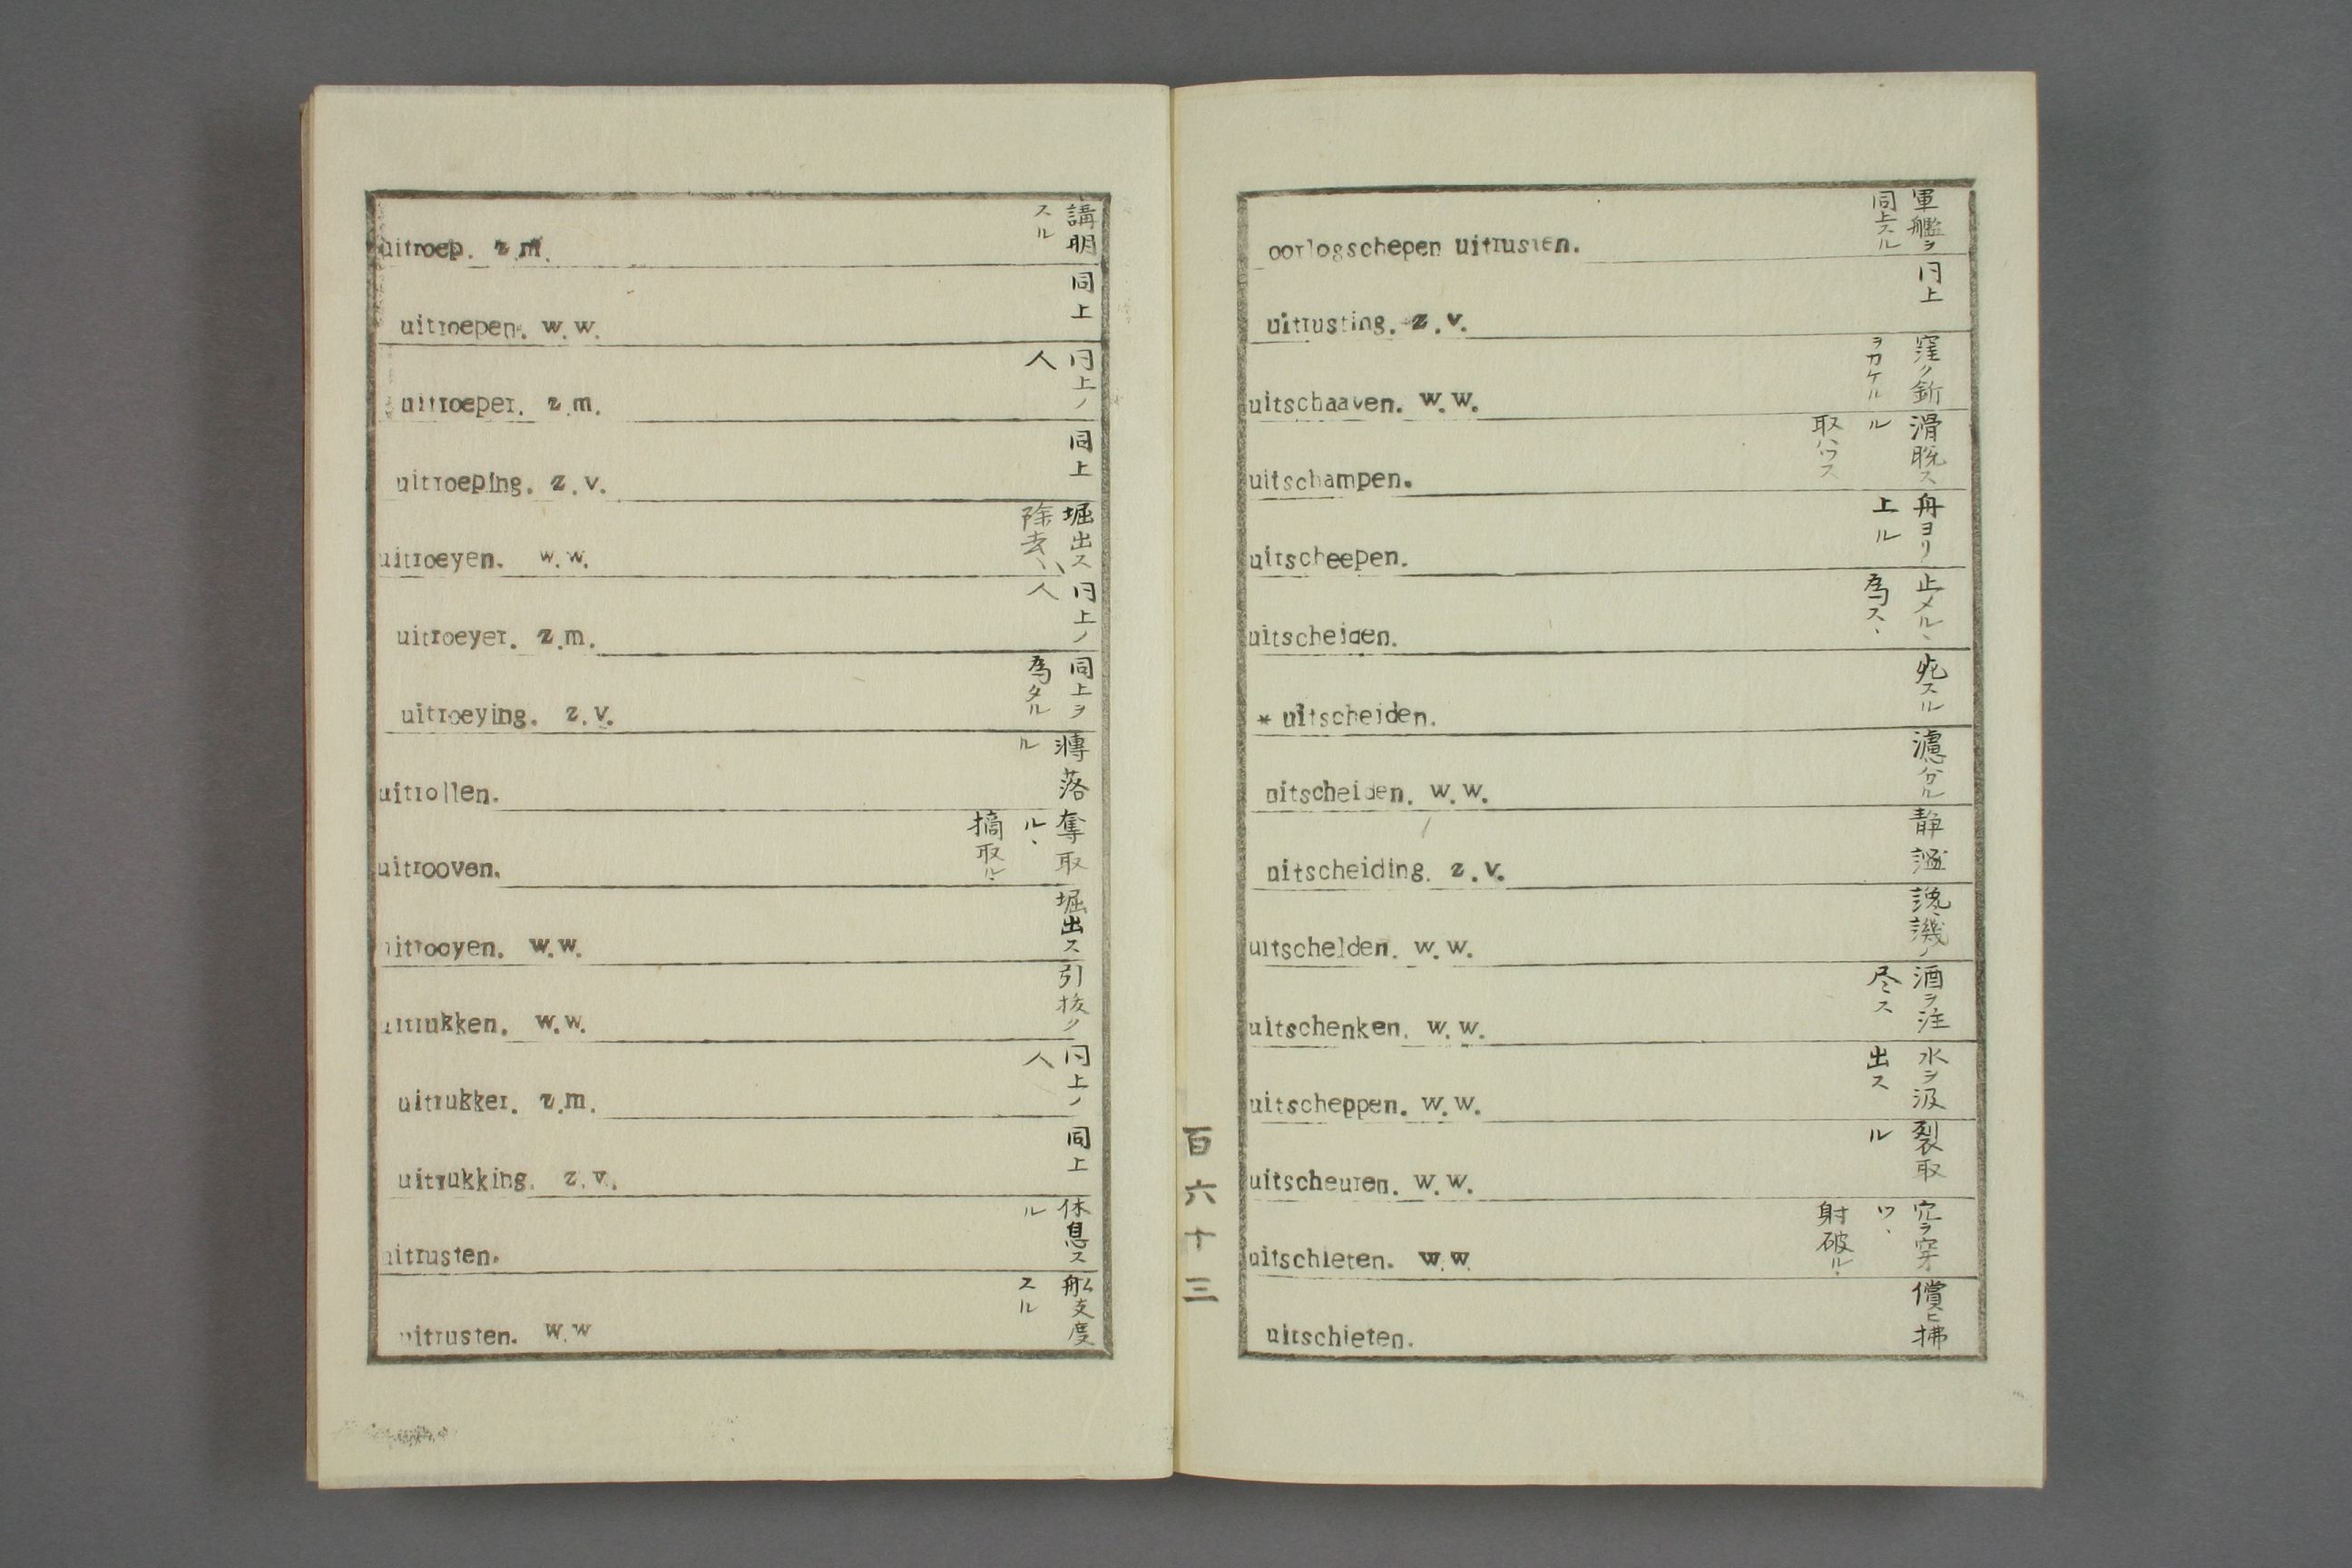 uitroep. z.m. 講明
スル
uitroepen. w.w. 同上
uitroeper. z.m. 同上ノ
人
uitroeping. z.v. 同上
uitroeyen. w.w. 堀出ス
除去
uitroeyer. z.m. 同上ノ
人
uitroeying. z.v. 同上ヲ
為タル
uitrollen. 落
ル
uitrooven. 奪取
ル、
摘取ル、
uitrooyen. w.w. 堀出ス
uitrukken. w.w. 引抜ク
uitrukker. z.m. 同上ノ
人
uitrukking. z.v. 同上
uitrusten. 休息ス
ル
uitrusten. w.w 舩支度
スル
oorlogschepen uitrusten. 軍艦ヲ
同上スル
uitrusting. z.v. 同上
uitschaaven. w.w. 窪ク釿
ヲカケル
uitschampen. 滑脱ス
ル
取ハヅス
uitscheepen. 舟ヨリ
上ル
uitscheiden. 止メル、
為ス、
* uitscheiden. 死スル
uitscheiden. w.w. 濾分ル
uitscheiding. z.v. 静謐
uitschelden. w.w. 譏
uitschenken. w.w. 酒ヲ注
尽ス
uitscheppen. w.w. 水ヲ汲
出ス
uitscheuren. w.w. 裂取
ル
uitschieten. w.w 穴ヲ穿
ツ、
射破ル、
uitschieten. 償ヒ拂
百六十三